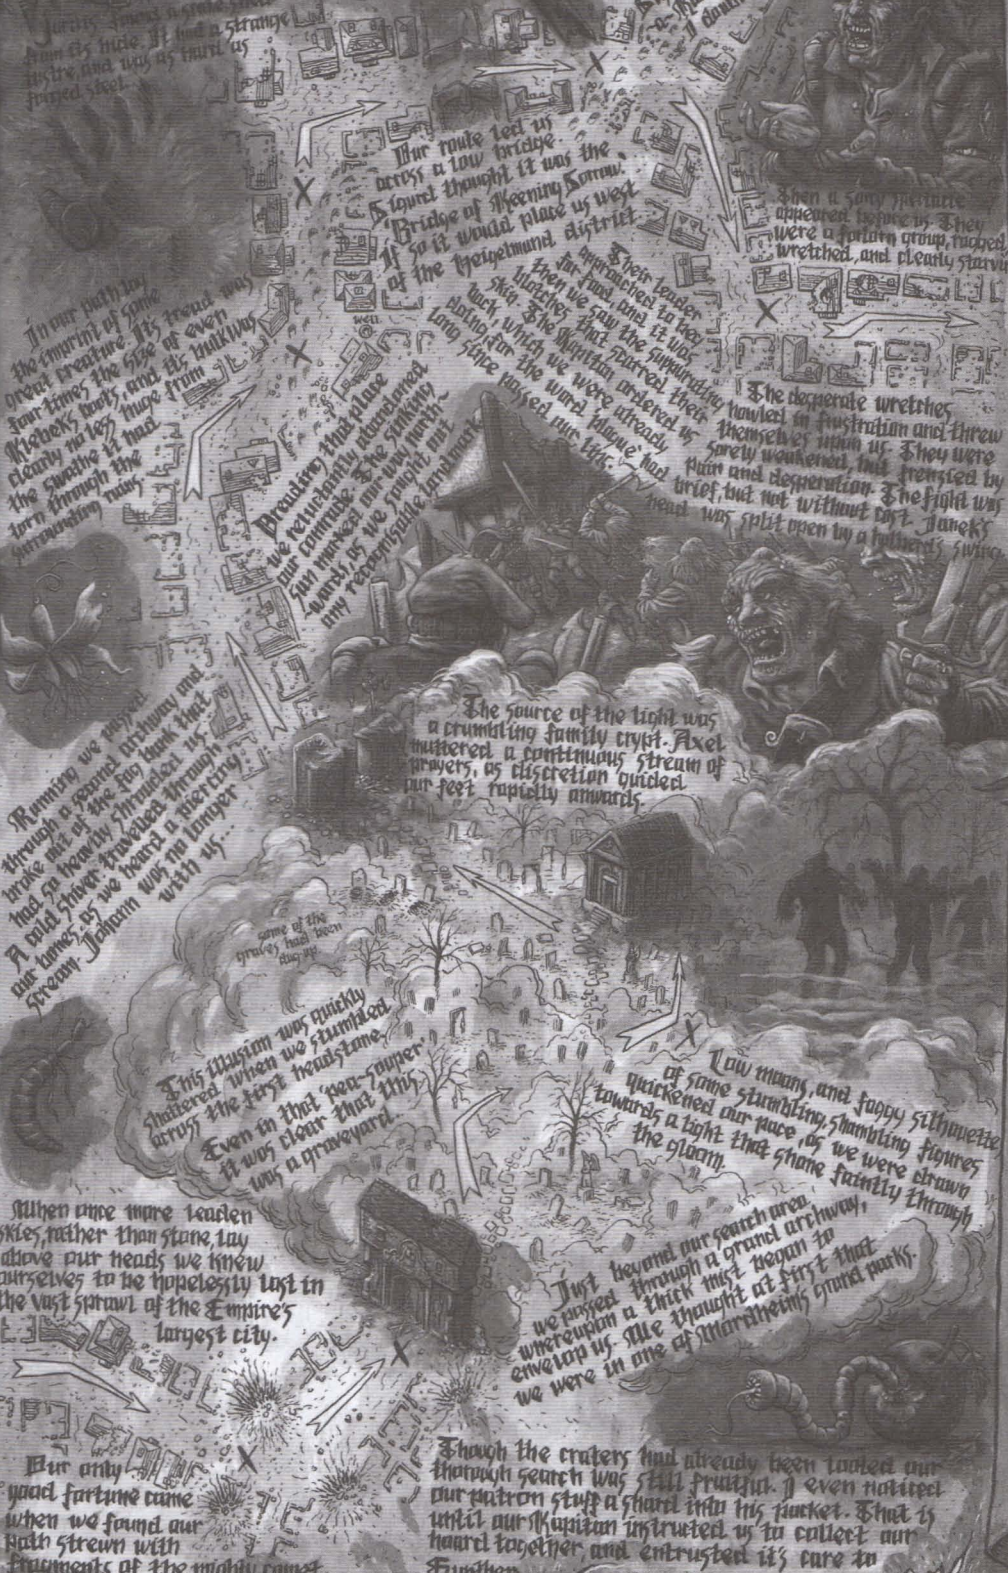 from its hide. It had a strange
lustre, and was as hard as
forged steel.
Our route led us
across a low bridge.
Sigurd thought it was the
'Bridge of Keening Sorrow'.
If so it would place us west
of the Heigelmund district
Then a sorry spectacle
appeared before us. They
were a forlorn group, ragged,
wretched, and clearly starvin
well
In our path lay
the imprint of some
great creature. Its tread was
four times the size of even
boots, and its bulk was
clearly no less huge from
the swathe it had
torn through the
surrounding
ruins.
Their leader
approached to beg
for food, and it was
then we saw the suppurating
blotches that starred their
skin. The Kapitan ordered us
back, which we were already
doing, for the word 'plague' had
long since passed our lips.
Dreading that place
we reluctantly abandoned
our comrade. The sinking
sun marked our way north-
wards, as we sought out
any recognisable landmark
The desperate wretches
howled in frustration and threw
themselves upon us. They were
sorely weakened, but frenzied by
pain and desperation. The fight was
brief, but not without cost. Janek's
head was split open by a
The source of the light was
a crumbling family crypt. Axel
muttered a continuous stream of
prayers, as discretion guided
our feet rapidly onwards.
Running we passed
through a second archway and
broke out of the fog bank that
had so heavily shrouded us.
A cold shiver travelled through
our bones, as we heard a piercing
scream. Johann was no longer
with us...
some of the
graves had been
dug up
This illusion was quickly
shattered when we stumbled
across the first headstone.
Even in that 'pea-souper'
it was clear that this
was a graveyard
Low moans, and foggy silhouette
of some stumbling, shambling figures
quickened our pace, as we were drawn
towards a light that shone faintly through
the gloom.
When once more leaden
skies, rather than stone, lay
above our heads we knew
ourselves to be hopelessly lost in
the vast sprawl of the Empire's
largest city.
Just beyond our search area,
we passed through a grand archway,
whereupon a thick mist began to
envelop us. We thought at first that
we were in one of Mordheim's grand parks.
Our only
good fortune came
when we found our
path strewn with
fragments of the mighty comet.
Though the craters had already been looted our
thorough search was still fruitful. I even noticed
our patron stuff a shard into his pocket. That is
until our Kapitan instructed us to collect our
hoard together, and entrusted it's care to
Further